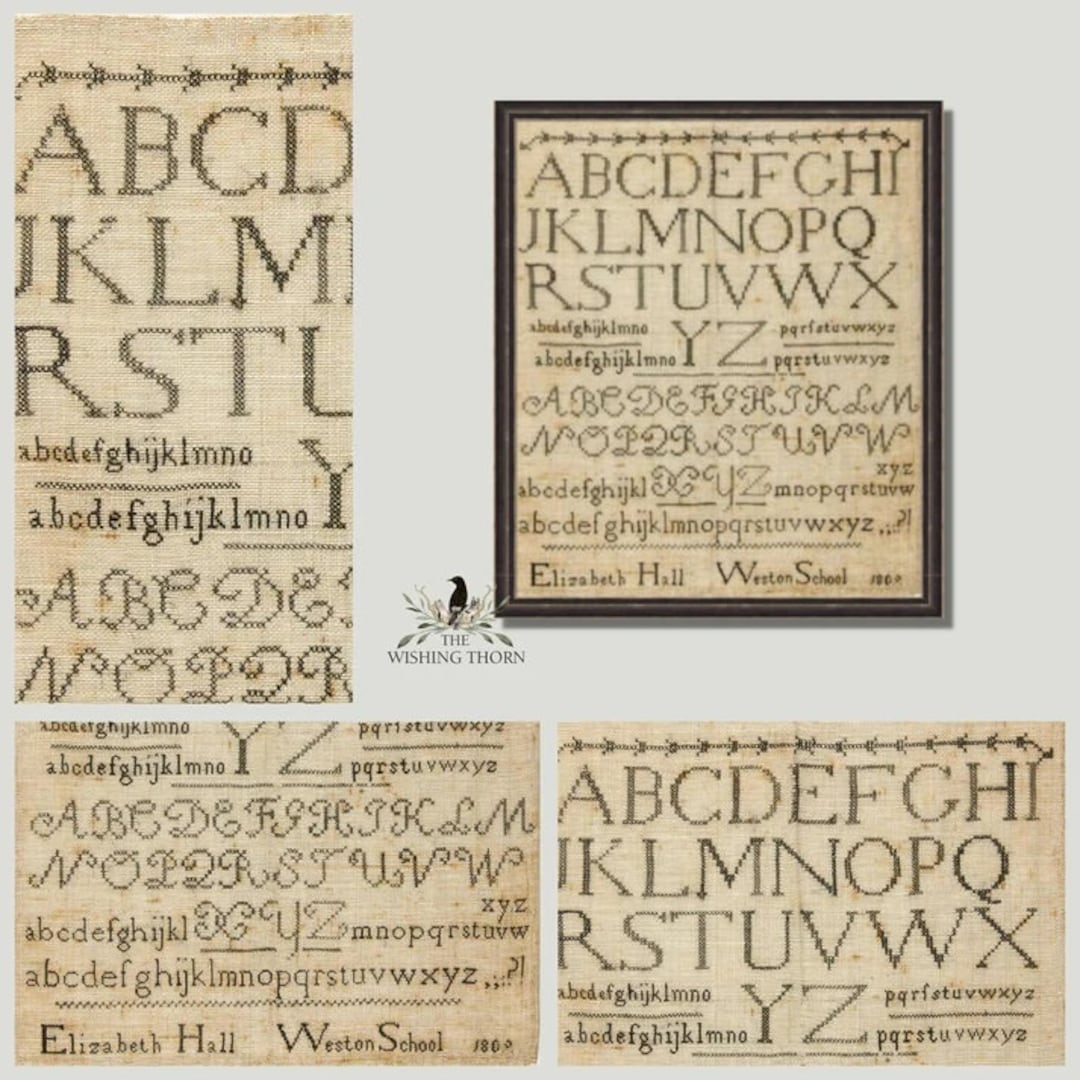 ABCD
JKLM
RSTU
abcdefghijklmno Y
abcdefghijklmno
ABCDE
NOPQR
ABCDEFGHI
JKLMNOPQ
RSTUVWX
abcdefghijklmno YZ pqrſstuvwxyz
abcdefghijklmno pqrstuvwxyz
ABCDEFGHIJKLM
NOPQRSTUVW
xyz
abcdefghijkl XYZ mnopqrstuvw
abcdefghijklmnopqrstuvwxyz ,;:.?!
Elizabeth Hall Weston School
THE
WISHING THORN
abcdefghijklmno YZ pqrſstuvwxyz
abcdefghijklmno pqrstuvwxyz
ABCDEFGHIJKLM
NOPQRSTUVW
xyz
abcdefghijkl XYZ mnopqrstuvw
abcdefghijklmnopqrstuvwxyz ,;:.?!
Elizabeth Hall Weston School
ABCDEFGHI
JKLMNOPQ
RSTUVWX
abcdefghijklmno YZ pqrſstuvwxyz
abcdefghijklmno pqrstuvwxyz